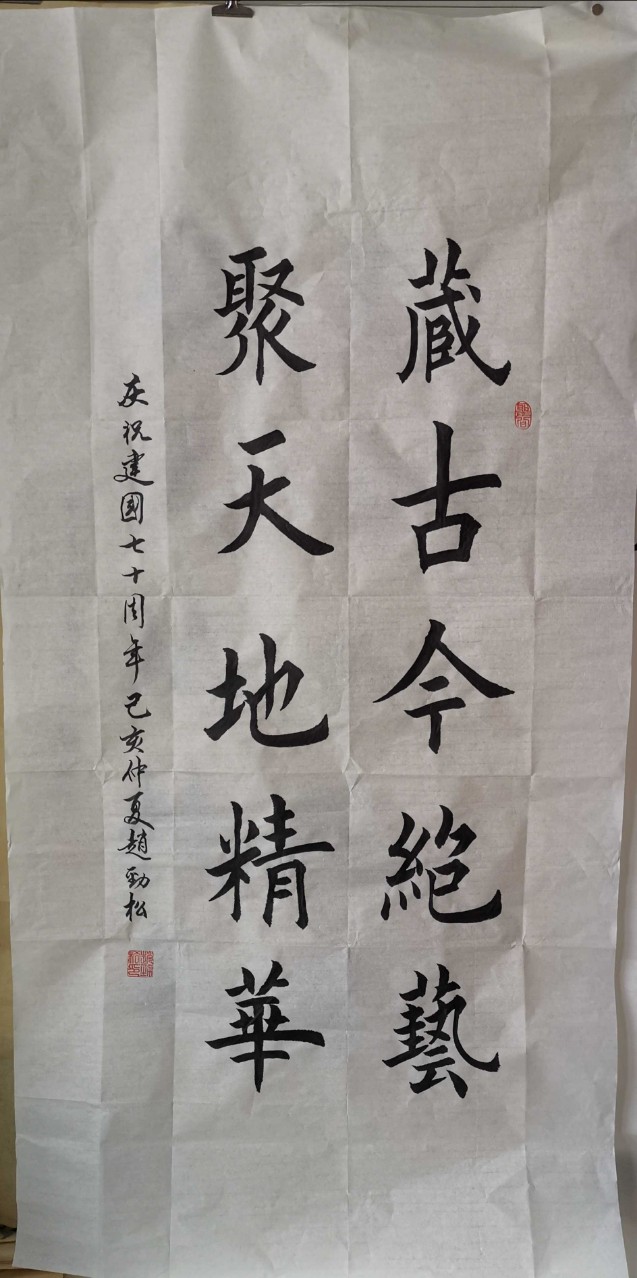 藏古今絕藝
聚天地精華
庆祝建國七十周年己亥仲夏趙勁松